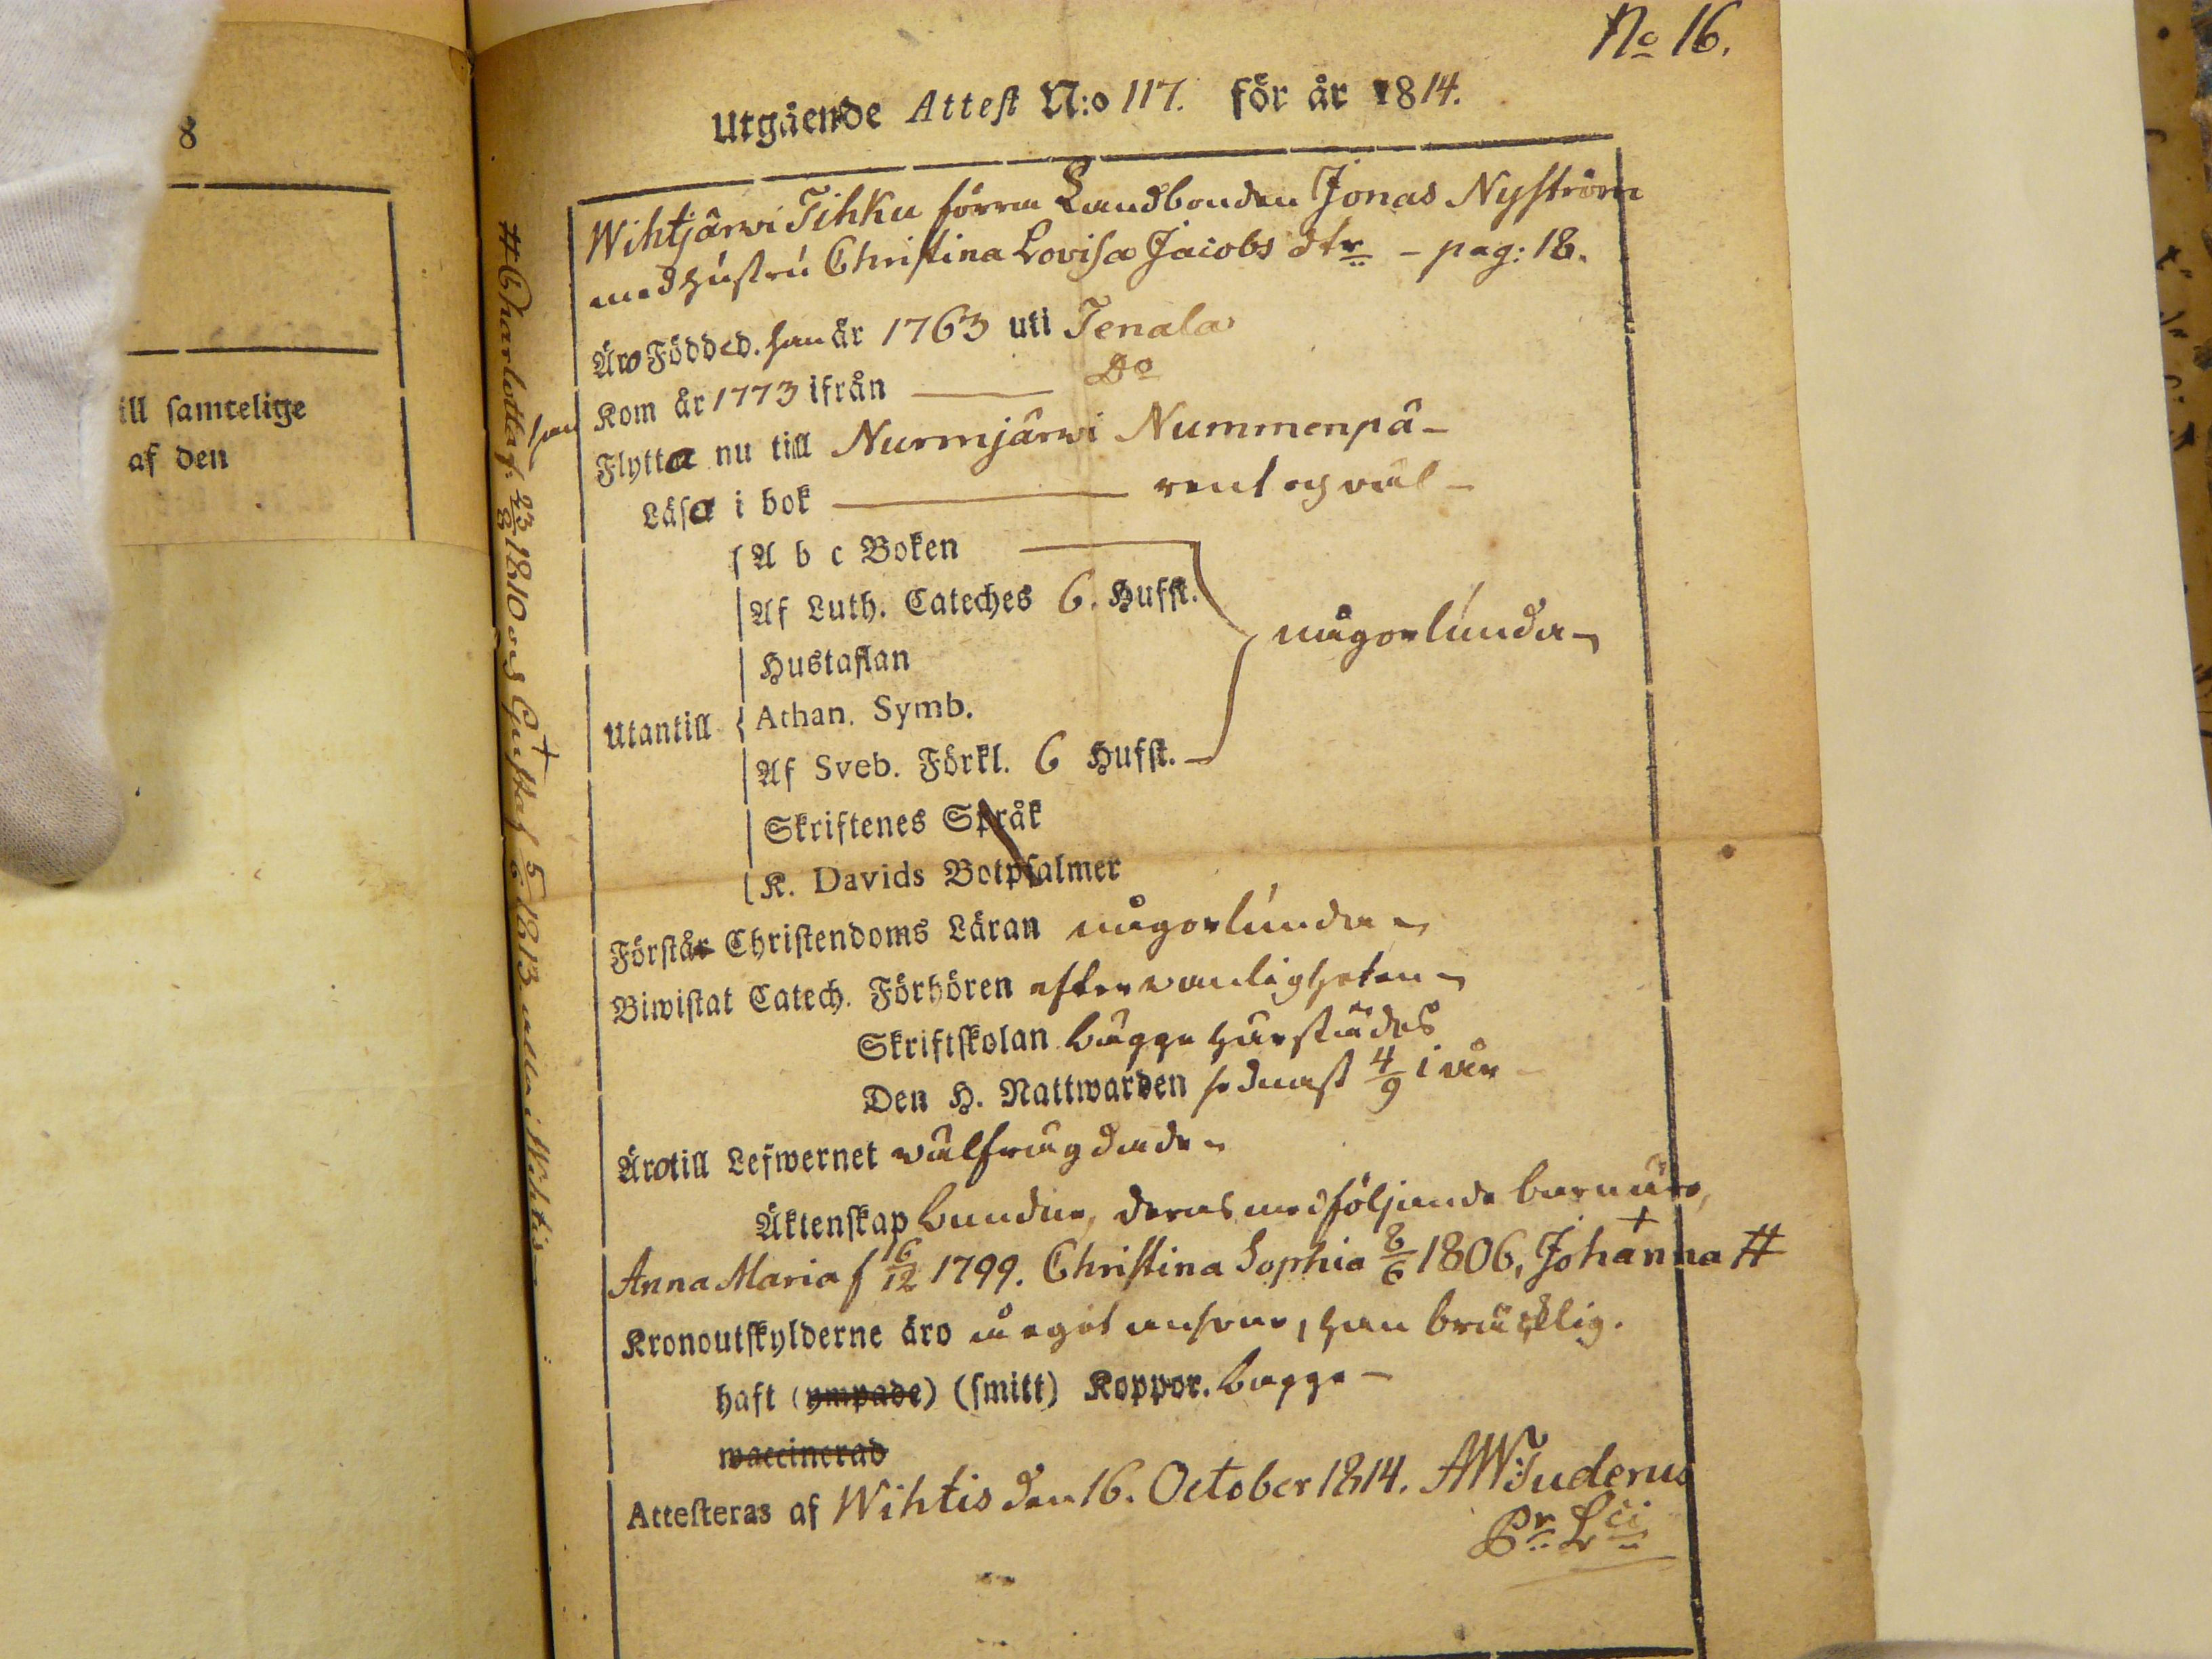 No 16.
Utgående Attest N:o 117. för år 1814.
Wihtjärwi Tihku förra Landbonden Jonas Nyström
med hustru Christina Lovisa Jacobs dtr – pag: 18.
Äro Födde d. han år 1763 uti Tenala
Kom år 1773 ifrån Do
Flytta nu till Nurmjärwi Nummenpä –
Läsa i bok rent och wäl –
A b c Boken
Af Luth. Cateches 6. Hufst.
någorlunda
Hustaflan
Utantill
Athan. Symb.
Af Sveb. Förkl. 6 Hufst.
Skriftenes Språk
K. Davids Botpsalmer
Förstår Christendoms Läran någorlunda
Biwistat Catech. Förhören efter wanligheten
Skriftskolan bägge härstädes
Den H. Nattwarden sednast 4/9 i år
Äro till Lefwernet wälfrägdade
Äktenskap bundne, deras medföljande barn äro,
Anna Maria f 16/12 1799. Christina Sophia 8/6 1806, Johanna #
Kronoutskylderne äro å eget ansvar, han bräcklig.
haft (ympade) (smitt) Koppor. bägge –
waccinerad
Attesteras af Wihtis den 16. October 1814. AWTuderus
Pr. Lci
# Charlotta f. 23/8 1810 och Gustaf 5/6 1813 alla i Wihtis
8
ill samtelige
af den